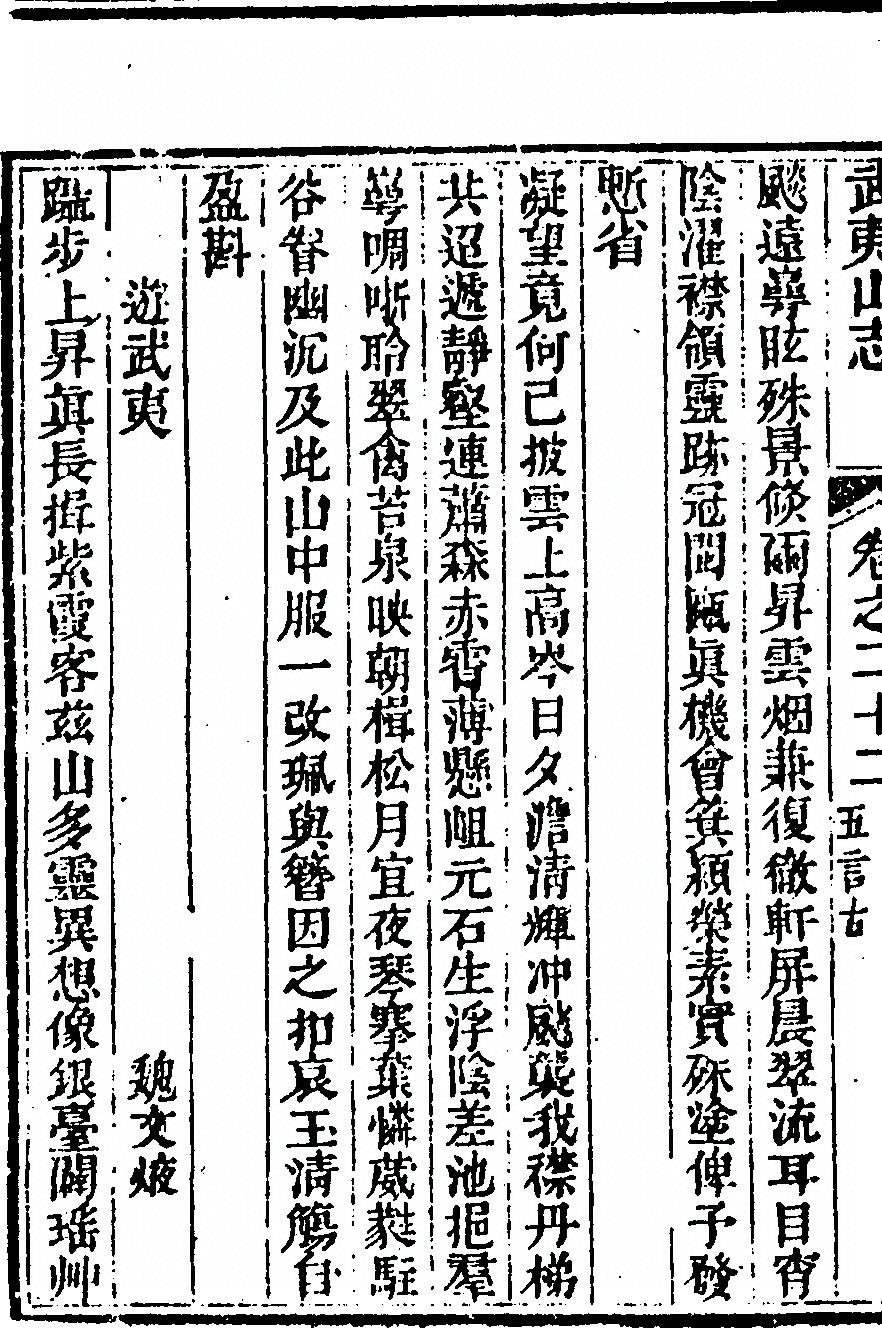 武夷山志 卷之二十二 五言古
飇遠尋眩殊景倐爾昇雲烟兼復徹軒屏晨翠流耳目宵
陰濯襟領靈跡冠閩甌眞機會箕潁榮素實硃塗俾予發
慙省
凝望竟何已披雲上高岑日夕澹清輝冲飇襲我襟丹梯
共迢遞靜壑連蕭森赤霄薄懸岨元石生浮陰差池挹羣
嶺啁哳聆翠禽苔泉映朝楫松月宜夜琴搴葉憐葳蕤駐
谷眷幽沉及此山中服一改珮與簪因之扣哀玉清觴自
盈斟
遊武夷 魏文焲
躡步上昇眞長揖紫霞客玆山多靈異想像銀臺闢瑶艸